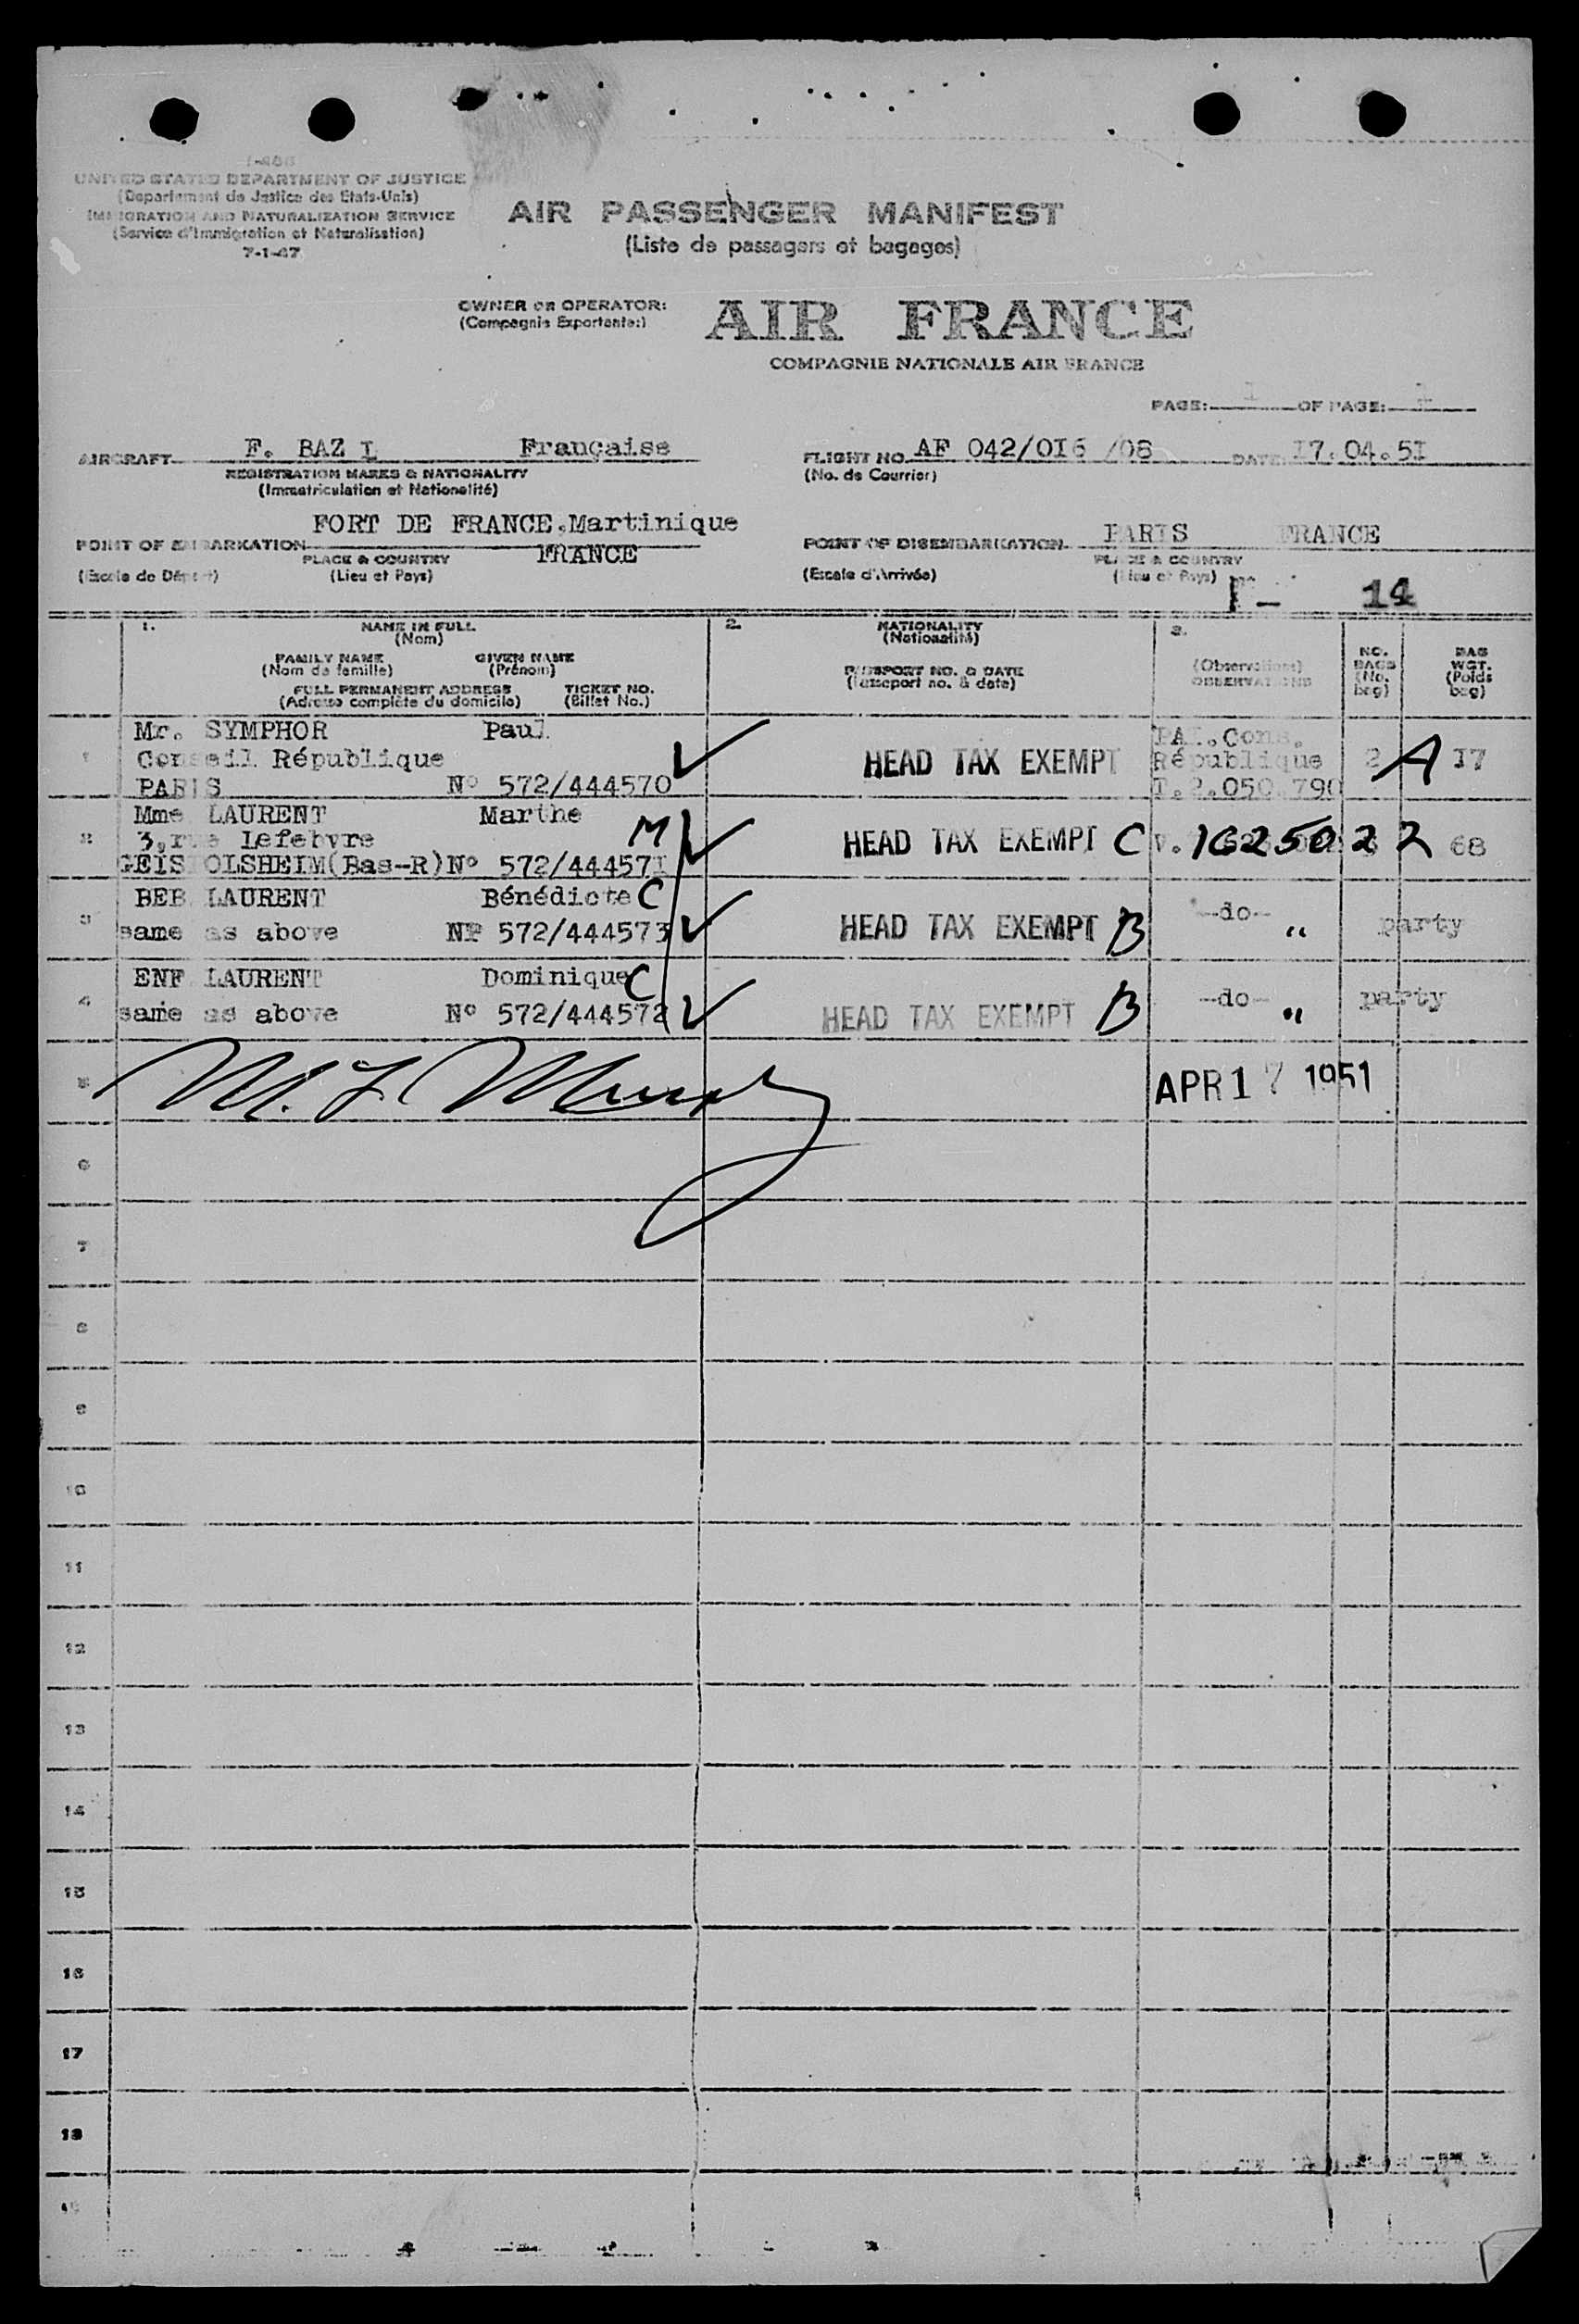 I-466
UNITED STATES DEPARTMENT OF JUSTICE
(Departement de Justice des Etats-Unis)
IMMIGRATION AND NATURALIZATION SERVICE
(Service d'Immigration et Naturalisation)
7-1-47
AIR PASSENGER MANIFEST
(Liste de passagers et bagages)
OWNER OR OPERATOR:
(Compagnie Exportante:)
AIR FRANCE
COMPAGNIE NATIONALE AIR FRANCE
PAGE: 1 OF PAGE: 1
AIRCRAFT F. BAZ I Française
REGISTRATION MARKS & NATIONALITY
(Immatriculation et Nationalité)
FLIGHT NO. AF 042/0I6 /08 DATE: I7.04.5I
(No. de Courrier)
FORT DE FRANCE,Martinique
POINT OF EMBARKATION FRANCE
PLACE & COUNTRY
(Escale de Départ) (Lieu et Pays)
POINT OF DISEMBARKATION PARIS FRANCE
PLACE & COUNTRY
(Escale d'Arrivée) (Lieu et Pays)
14
1. NAME IN FULL
(Nom)
FAMILY NAME GIVEN NAME
(Nom de famille) (Prénom)
FULL PERMANENT ADDRESS TICKET NO.
(Adresse complète du domicile) (Billet No.)
2. NATIONALITY
(Nationalité)
PASSPORT NO. & DATE
(Passeport no. & date)
3.
(Observations)
OBSERVATIONS
NO.
BAGS
(No.
bag)
BAG
WGT.
(Poids
bag)
1 Mr. SYMPHOR Paul
Conseil République
PARIS No 572/444570
HEAD TAX EXEMPT
PAI.Cons.
République
T.2.050.790
2 A I7
2 Mme LAURENT Marthe
3,rue Lefebvre M
GEISPOLSHEIM(Bas-R)No 572/44457I
HEAD TAX EXEMPT C V. 1625022 2 68
3 BEB LAURENT Bénédicte C
same as above No 572/444573
HEAD TAX EXEMPT B -do- " party
4 ENF LAURENT Dominique C
same as above No 572/444572
HEAD TAX EXEMPT B -do- " party
5 APR 17 1951
6
7
8
9
10
11
12
13
14
15
16
17
18